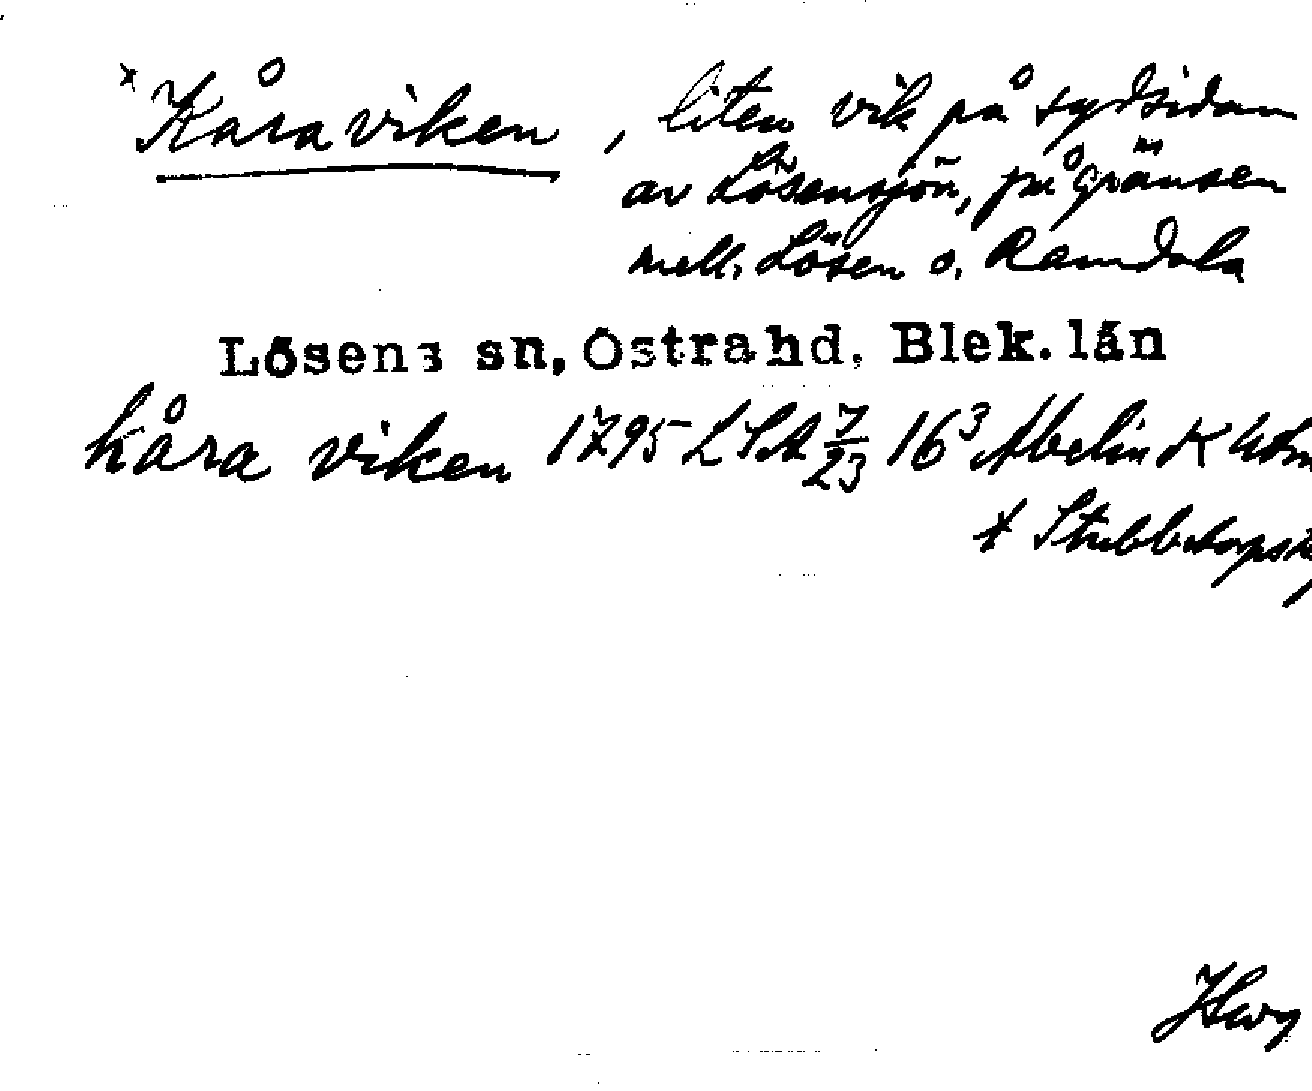 x Kåraviken, liten vik på sydsidan
av Lösensjön, på gränsen
mell. Lösen o. Ramdala
Lösens sn, Östra hd, Blek. län
kåra viken 1795 LSA 7/23 16³ Abelin K
*